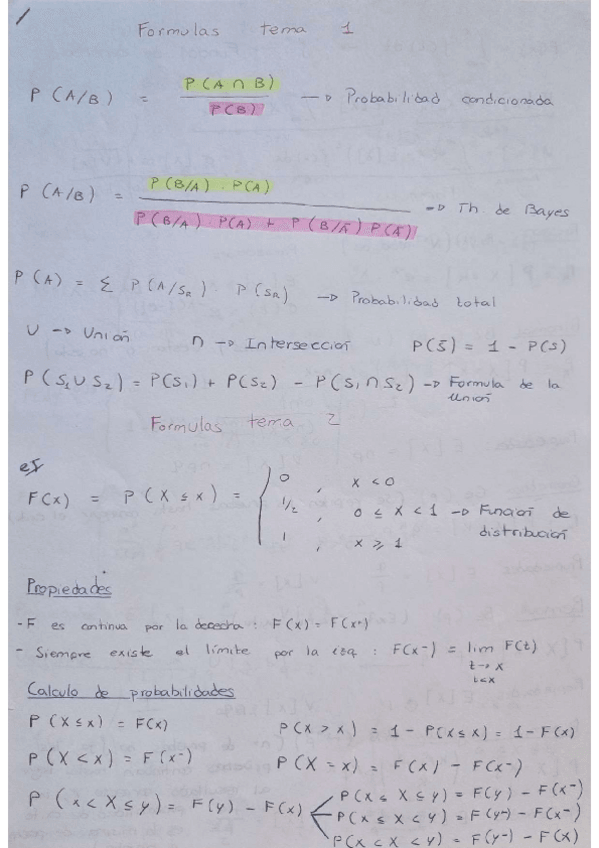 Formulas tema 1
P (A/B) = P(A ∩ B) / P(B) → Probabilidad condicionada
P (A/B) = P(B/A) · P(A) / P(B/A) · P(A) + P(B/Ā) P(Ā) → Th de Bayes
P (A) = Σ P(A/Sₖ) P(Sₖ) → Probabilidad total
∪ → Unión ∩ → Intersección P(S̄) = 1 - P(S)
P(S₁ ∪ S₂) = P(S₁) + P(S₂) - P(S₁ ∩ S₂) → Formula de la unión
Formulas tema 2
ej
F(x) = P(X ≤ x) = { 0 , x < 0
1/2 , 0 ≤ x < 1 → Función de distribución
1 , x ≥ 1
Propiedades
- F es continua por la derecha : F(x) = F(x⁺)
- Siempre existe el límite por la izq : F(x⁻) = lim F(t)
t → x
t < x
Calculo de probabilidades
P (X ≤ x) = F(x) P(X > x) = 1 - P(X ≤ x) = 1 - F(x)
P (X < x) = F(x⁻) P(X = x) = F(x) - F(x⁻)
P (x < X ≤ y) = F(y) - F(x) P(x ≤ X ≤ y) = F(y) - F(x⁻)
P(x ≤ X < y) = F(y⁻) - F(x⁻)
P(x < X < y) = F(y⁻) - F(x)